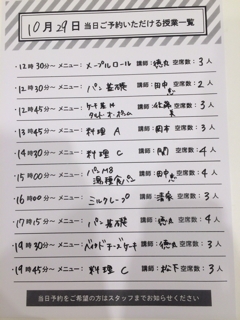 10月29日 当日ご予約いただける授業一覧
・12時30分〜 メニュー：メープルロール 講師：徳丸 空席数：3人
・12時30分〜 メニュー：パン基礎 講師：田中 空席数：2人
・12時45分〜 メニュー：ケーキ基礎 講師：佐藤 空席数：3人
・13時45分〜 メニュー：料理 A 講師：岡本 空席数：3人
・14時30分〜 メニュー：料理 C 講師：関 空席数：4人
・15時00分〜 メニュー：パンMB 湯種食パン 講師：田中 空席数：4人
・16時00分〜 メニュー：ミルクレープ 講師： 空席数：3人
・17時15分〜 メニュー：パン基礎 講師：徳丸 空席数：4人
・19時30分〜 メニュー：ベイクドチーズケーキ 講師：徳丸 空席数：3人
・19時45分〜 メニュー：料理 C 講師：松下 空席数：3人
当日予約をご希望の方はスタッフまでお知らせください